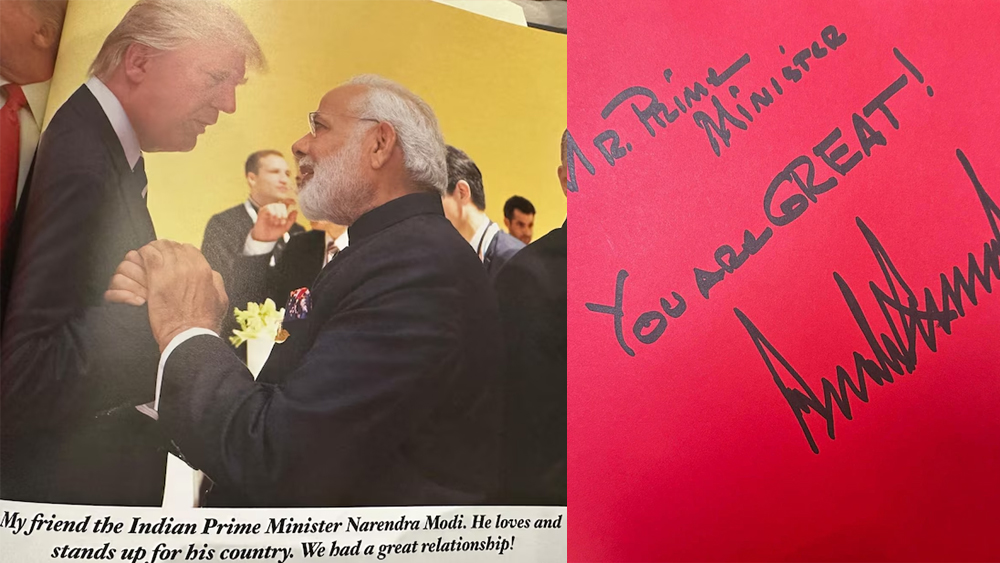 My friend the Indian Prime Minister Narendra Modi. He loves and
stands up for his country. We had a great relationship!
MR. PRIME
MINISTER
YOU ARE GREAT!